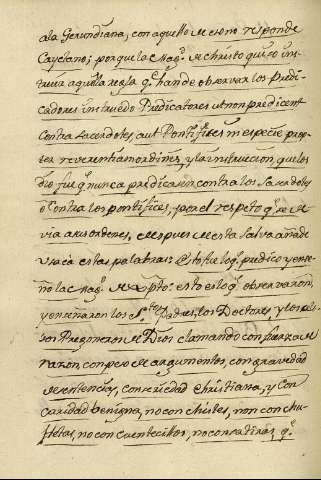 ala Gerundiana, con aquello de ceño responde
Cayetano; porque la Mag.d de Christo quiso ins-
truir aquella regla q.e han de observar los Predi-
cadores instruendo Predicatores ut non predicent
contra sacerdotes, aut Pontifices in specie prop-
ter reverentiam ordinis, y la instruccion que les
dio fue q.e nunca predicasen contra los Sacerdotes
o contra los pontifices, por el respeto q.e se de-
via a sus ordenes, despues de esta salva añade
y saca estas palabras: Esto fue lo q.e predico y ense-
ño la Mag.d de Xpto: esto es lo q.e observaron,
y enseñaron los S.tos Padres, los Doctores, y los
Pregoneros de Dios clamando con fuerza de
razon, con peso de argumentos, con gravedad
de sentencias, con seriedad Christiana, y con
caridad benigna, no con chistes, non con chu-
fletas, no con cuentecillos, no con satiras, q.e